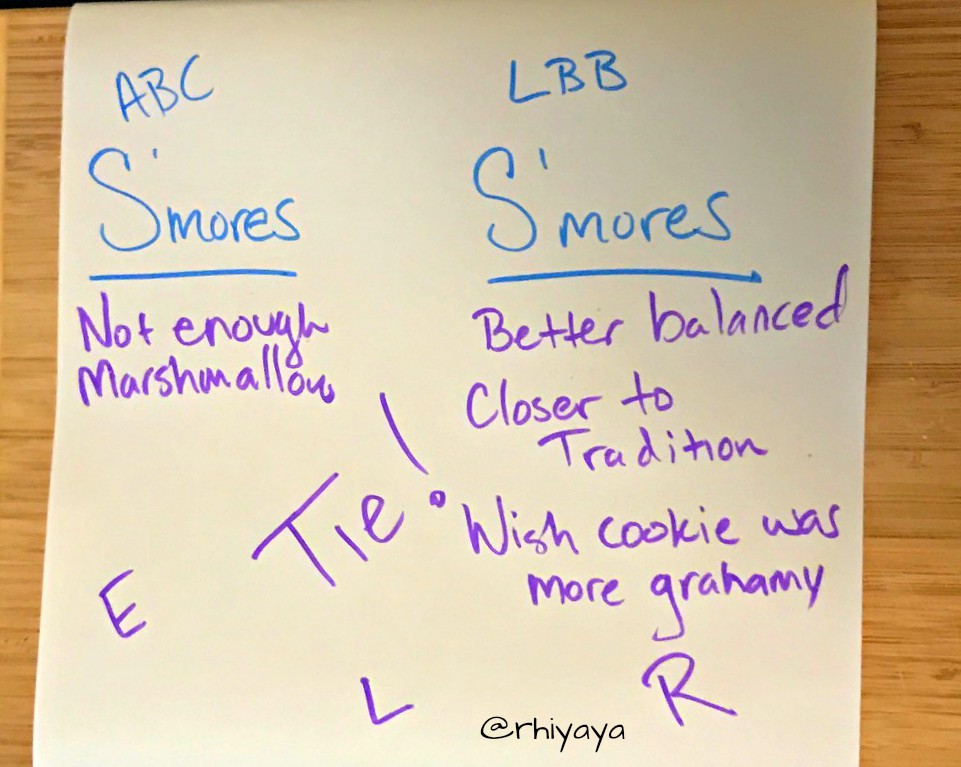 ABC
S'mores
Not enough
Marshmallow
LBB
S'mores
Better balanced
Closer to
Tradition
Wish cookie was
more grahamy
Tie!
E
L
R
@rhiyaya